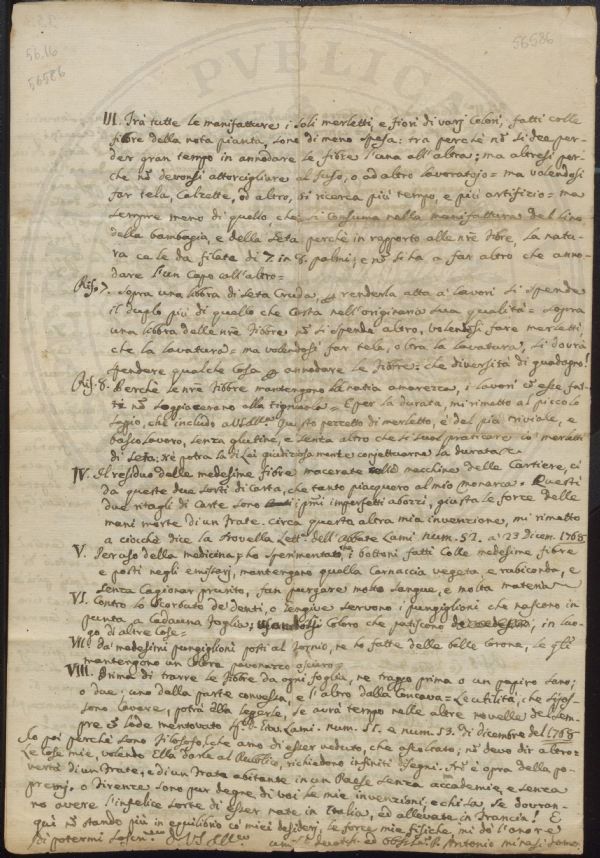 56.16
56586
56586
PVBLICA
III. Trà tutte le manifatture i soli merletti, e fiori di varj colori, fatti colle
fibre della nota pianta, sono di meno spesa: tra perchè nō si dee per-
der gran tempo in annodare le fibre l'una all'altra; ma altresì per-
chè nō devonsi attorcigliare al fuso, o ad altro lavoratojo = ma volendosi
far tela, calzette, od altro, vi ricerca più tempo, e più artifizio = ma
sempre meno di quello, che si consuma nella manifattura del lino
della bambagia, e della seta, perchè in rapporto alle nrē fibre, la natu-
ra ce le dà filate di 7. in 8. palmi; e nō si ha a far altro che anno-
dare l'un capo coll'altro =
Ris. 7. Sopra una libbra di seta cruda, p renderla atta a' lavori si spende
il duplo più di quello che costa nell'originaria sua qualità = sopra
una libbra delle nrē fibbre nō si spende altro, volendosi fare merletti,
che la lavatura = ma volendosi far tela, oltra la lavatura, si dovrà
spendere qualche cosa p annodare le fibbre: che diversità di guadagno!
Ris. 8. Perchè le nrē fibbre mantengono la natia amarezza, i lavori cō esse fat-
ti nō soggiaceranno alla tignuola = E per la durata, mi rimetto al piccolo
che includo a Questo pezzetto di merletto, è del più triviale, e
basso lavoro, senza glutine, e senza altro che si suol praticare cō merletti
di seta: ne potrà la di Lei giudiziosa mente conjetturarne la durata =
IV. Il residuo delle medesime fibre macerate nelle macchine delle Cartiere, ci
dà queste due sorti di carta, che tanto piacquero al mio Monarca. Questi
due ritagli di Carte sono i p̄mi imperfetti abozzi, giusta le forze delle
mani morte di un Frate. circa questa altra mia invenzione, mi rimetto
a ciocchè dice la Novella Lett. dell'Abbate Lami num. 51. a 23 dicem. 1768
V. Per uso della medicina, ho sperimentato, che i bottoni, fatti colle medesime fibre
e posti negli emissarj, mantengono quella carnaccia vegeta e rubiconda, e
senza cagionar prurito, fan purgare molto sangue, e molta materia
VI. Contro lo scorbuto de' denti, o gengive servono i pungiglioni che nascono in
punta a cadauna foglia, coloro che patiscono in luo-
go di altre cose =
VII. Da' medesimi pungiglioni posti al tornio, ne ho fatte delle belle corone, le q̄li
mantengono un colore pavonazzo oscuro =
VIII. Prima di trarre le fibre da ogni foglia, ne traggo prima o un papiro sano;
o due: uno dalla parte convessa, e l'altro dalla concava = Le utilità, che si pos-
sono avere, potrà Ella legerle, se avrà tempo nelle altre novelle del sem-
pre cō lode mentovato Lami. num. 51. e num. 53. di dicembre del 1768
Io poi perchè sono filosofo, che amo di esser veduto, che ascoltato; nō devo dir altro =
Le cose mie, volendo Ella darle al Pubblico, richiedono infiniti disegni. Nō è opra della po-
vertà di un Frate, e di un Frate abitante in un Paese senza accademie, e senza
premj. o Firenze sono pur degne di voi le mie invenzioni, e chi sa, se dovran-
no avere l'infelice sorte di esser nate in Italia, ed allevate in Francia! E
qui nō stando più in equilibrio cō miei desiderj, le forze mie fisiche, mi dò l'onore
di potermi
Antonio minasi domo.